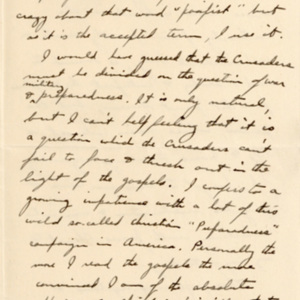 crazy about that word "pacifist" but
as it is the accepted term, I use it.
I would have guessed that the Crusaders
must be divided on the question of war
& military preparedness. It is only natural,
but I can't help feeling that it is
a question which the Crusaders can't
fail to face & thresh out in the
light of the gospels. I confess to a
growing impatience with a lot of this
wild so-called Christian "Preparedness"
campaign in America. Personally the
more I read the gospels the more
convinced I am of the absolute